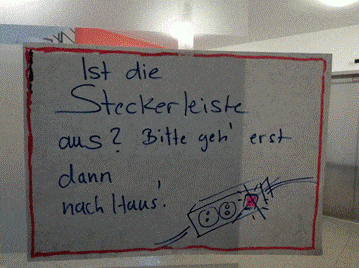 Ist die
Steckerleiste
aus? Bitte geh' erst
dann
nach Haus!